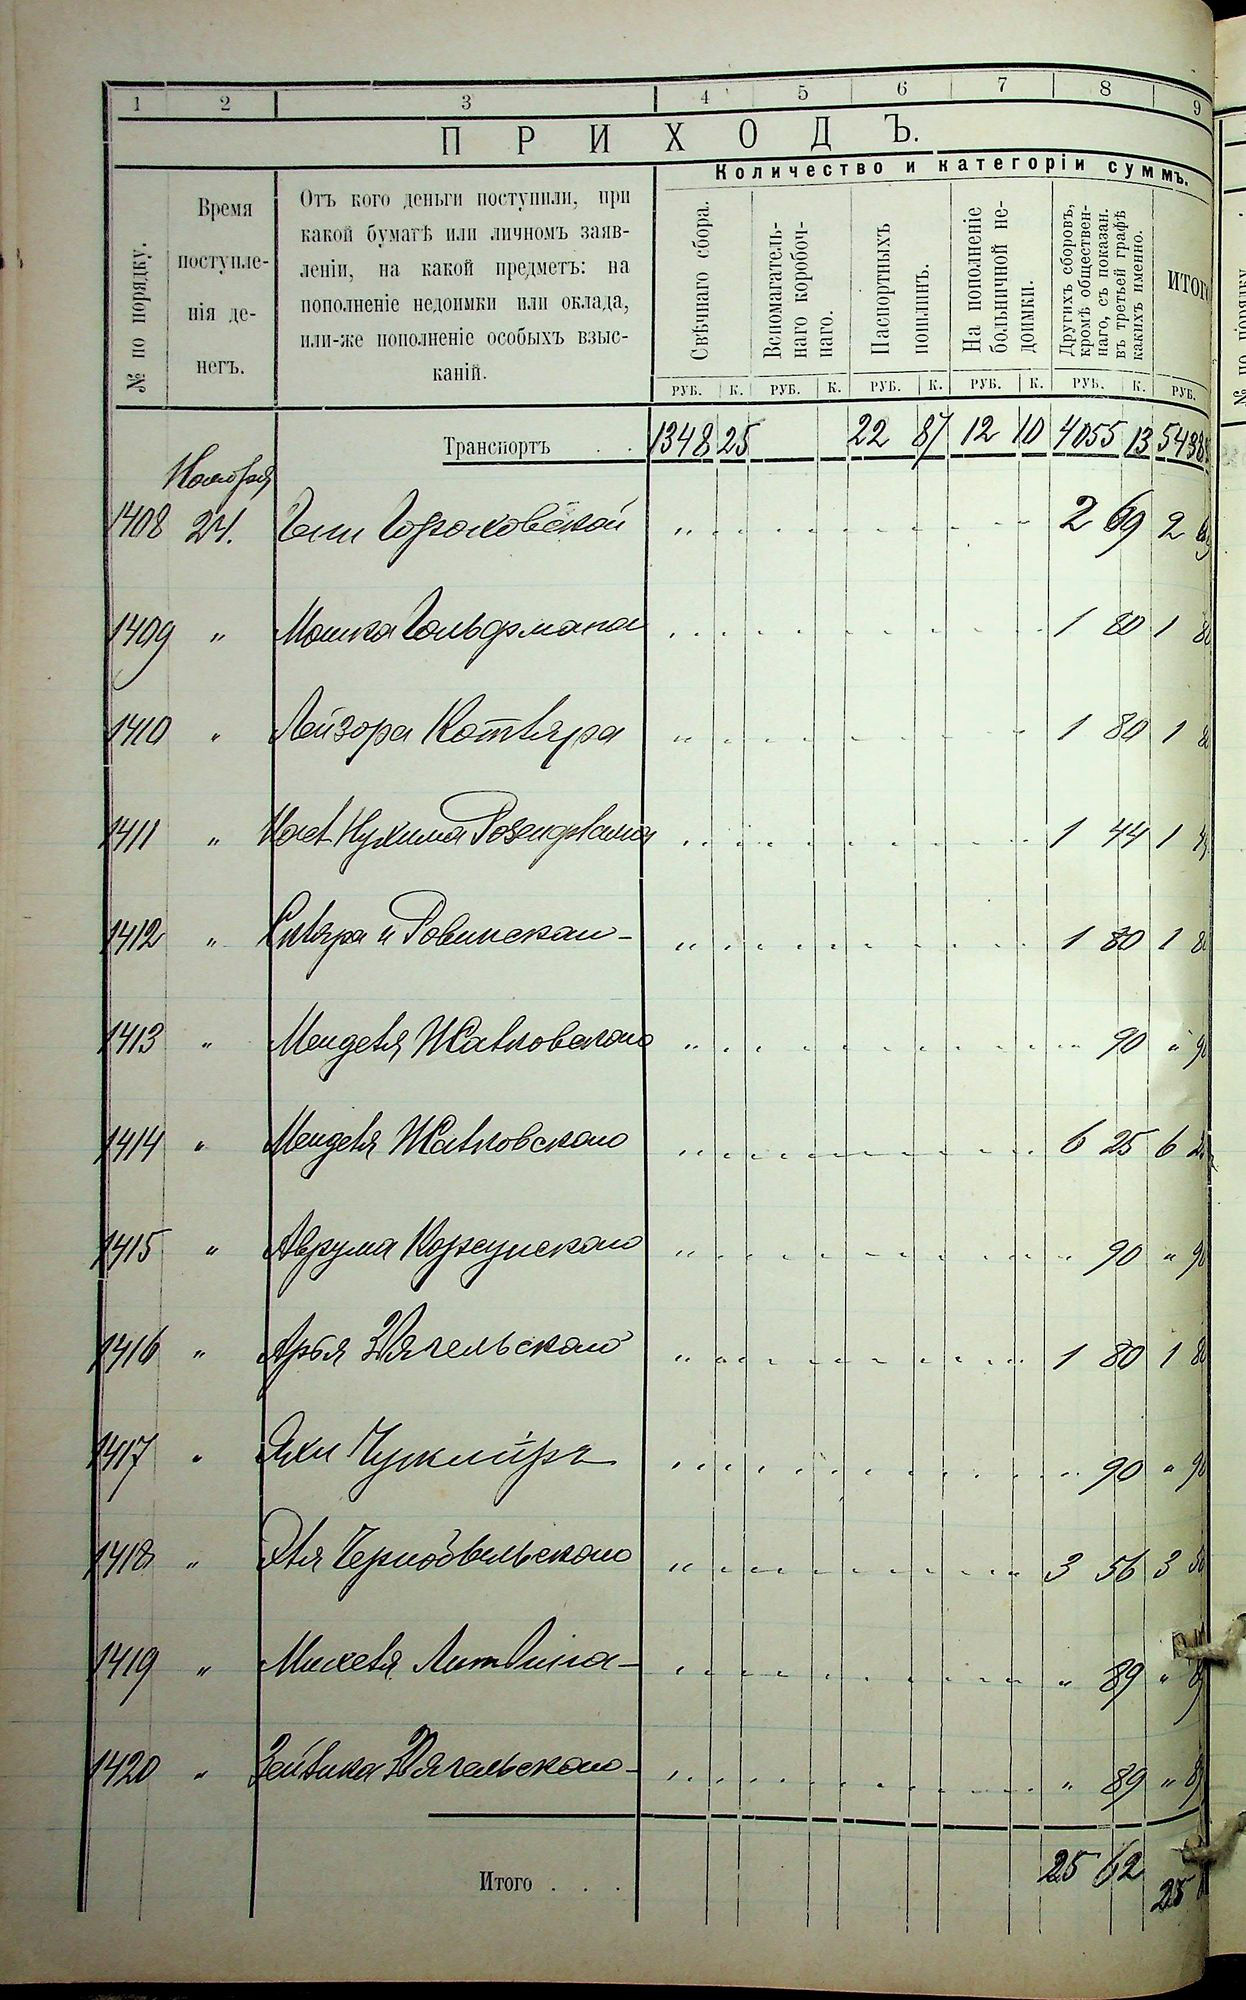 1 2 3 4 5 6 7 8 9
ПРИХОДЪ.
Количество и категоріи суммъ.
№ по порядку.
Время поступле-
нія де-
негъ.
Отъ кого деньги поступили, при
какой бумагѣ или личномъ заяв-
леніи, на какой предметъ: на
пополненіе недоимки или оклада,
или-же пополненіе особыхъ взыс-
каній.
Свѣчнаго сбора.
Вспомагатель-
наго коробоч-
наго.
Паспортныхъ
пошлинъ.
На пополненіе
больничной не-
доимки.
Другихъ сборовъ,
кромѣ обществен-
наго, съ показан.
въ третьей графѣ
какихъ именно.
ИТОГО
РУБ. К. РУБ. К. РУБ. К. РУБ. К. РУБ. К. РУБ.
Транспортъ . . 1348 25 22 87 12 10 4055 13 5438
Ноября
1408 24. Гени 2 69 2 69
1409 " Мошка Гольдмана 1 80 1 80
1410 " Лейзора Котляра 1 80 1 80
1411 " Нухима Розенфельда 1 44 1 44
1412 " и Ровинскаго 1 80 1 80
1413 " Менделя Жалковскаго " 90 " 90
1414 " Менделя Жалковскаго 6 25 6 25
1415 " Аврума Корсунскаго " 90 " 90
1416 " Арья Звягельскаго 1 80 1 80
1417 " " 90 " 90
1418 " Эля Чернобыльскаго 3 56 3 56
1419 " Михеля Литвина " 89 " 89
1420 " Зейлика Звягельскаго " 89 " 89
Итого . . . 25 62 25